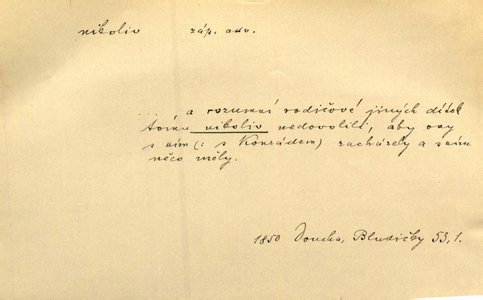 nikoliv záp. adv.
a rozumní rodičové jiných dítek
tomu nikoliv nedovolili, aby ony
s ním (: s Konrádem) zacházely a s ním
něco měly.
1850 Doucha, Bludičky 53, 1.